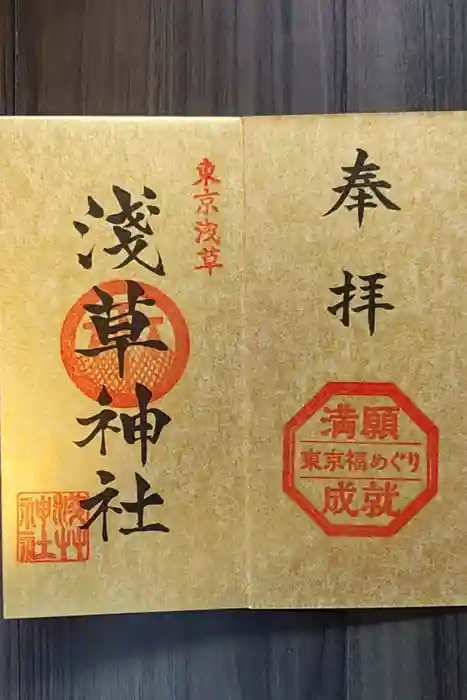 奉拝
満願
東京福めぐり
成就
東京浅草
淺草神社
浅草
神社